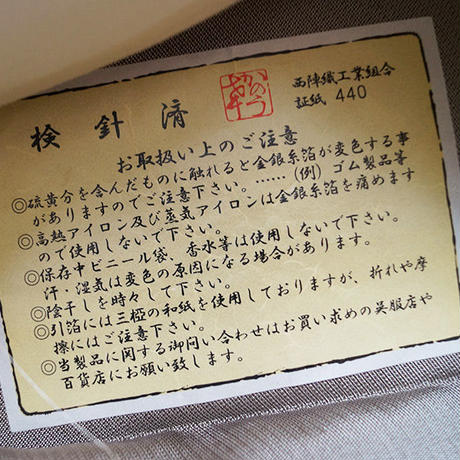 検針済
西陣織工業組合
証紙 440
お取扱い上のご注意
◎硫黄分を含んだものに触れると金銀糸箔が変色する事
がありますのでご注意下さい。……(例)ゴム製品等
◎高熱アイロン及び蒸気アイロンは金銀糸箔を痛めます
ので使用しないで下さい。
◎保存中ビニール袋、香水等は使用しないで下さい。
汗・湿気は変色の原因になる場合があります。
◎陰干しを時々して下さい。
◎引箔には三椏の和紙を使用しておりますが、折れや摩
擦にはご注意下さい。
◎当製品に関する御問い合わせはお買い求めの呉服店や
百貨店にお願い致します。